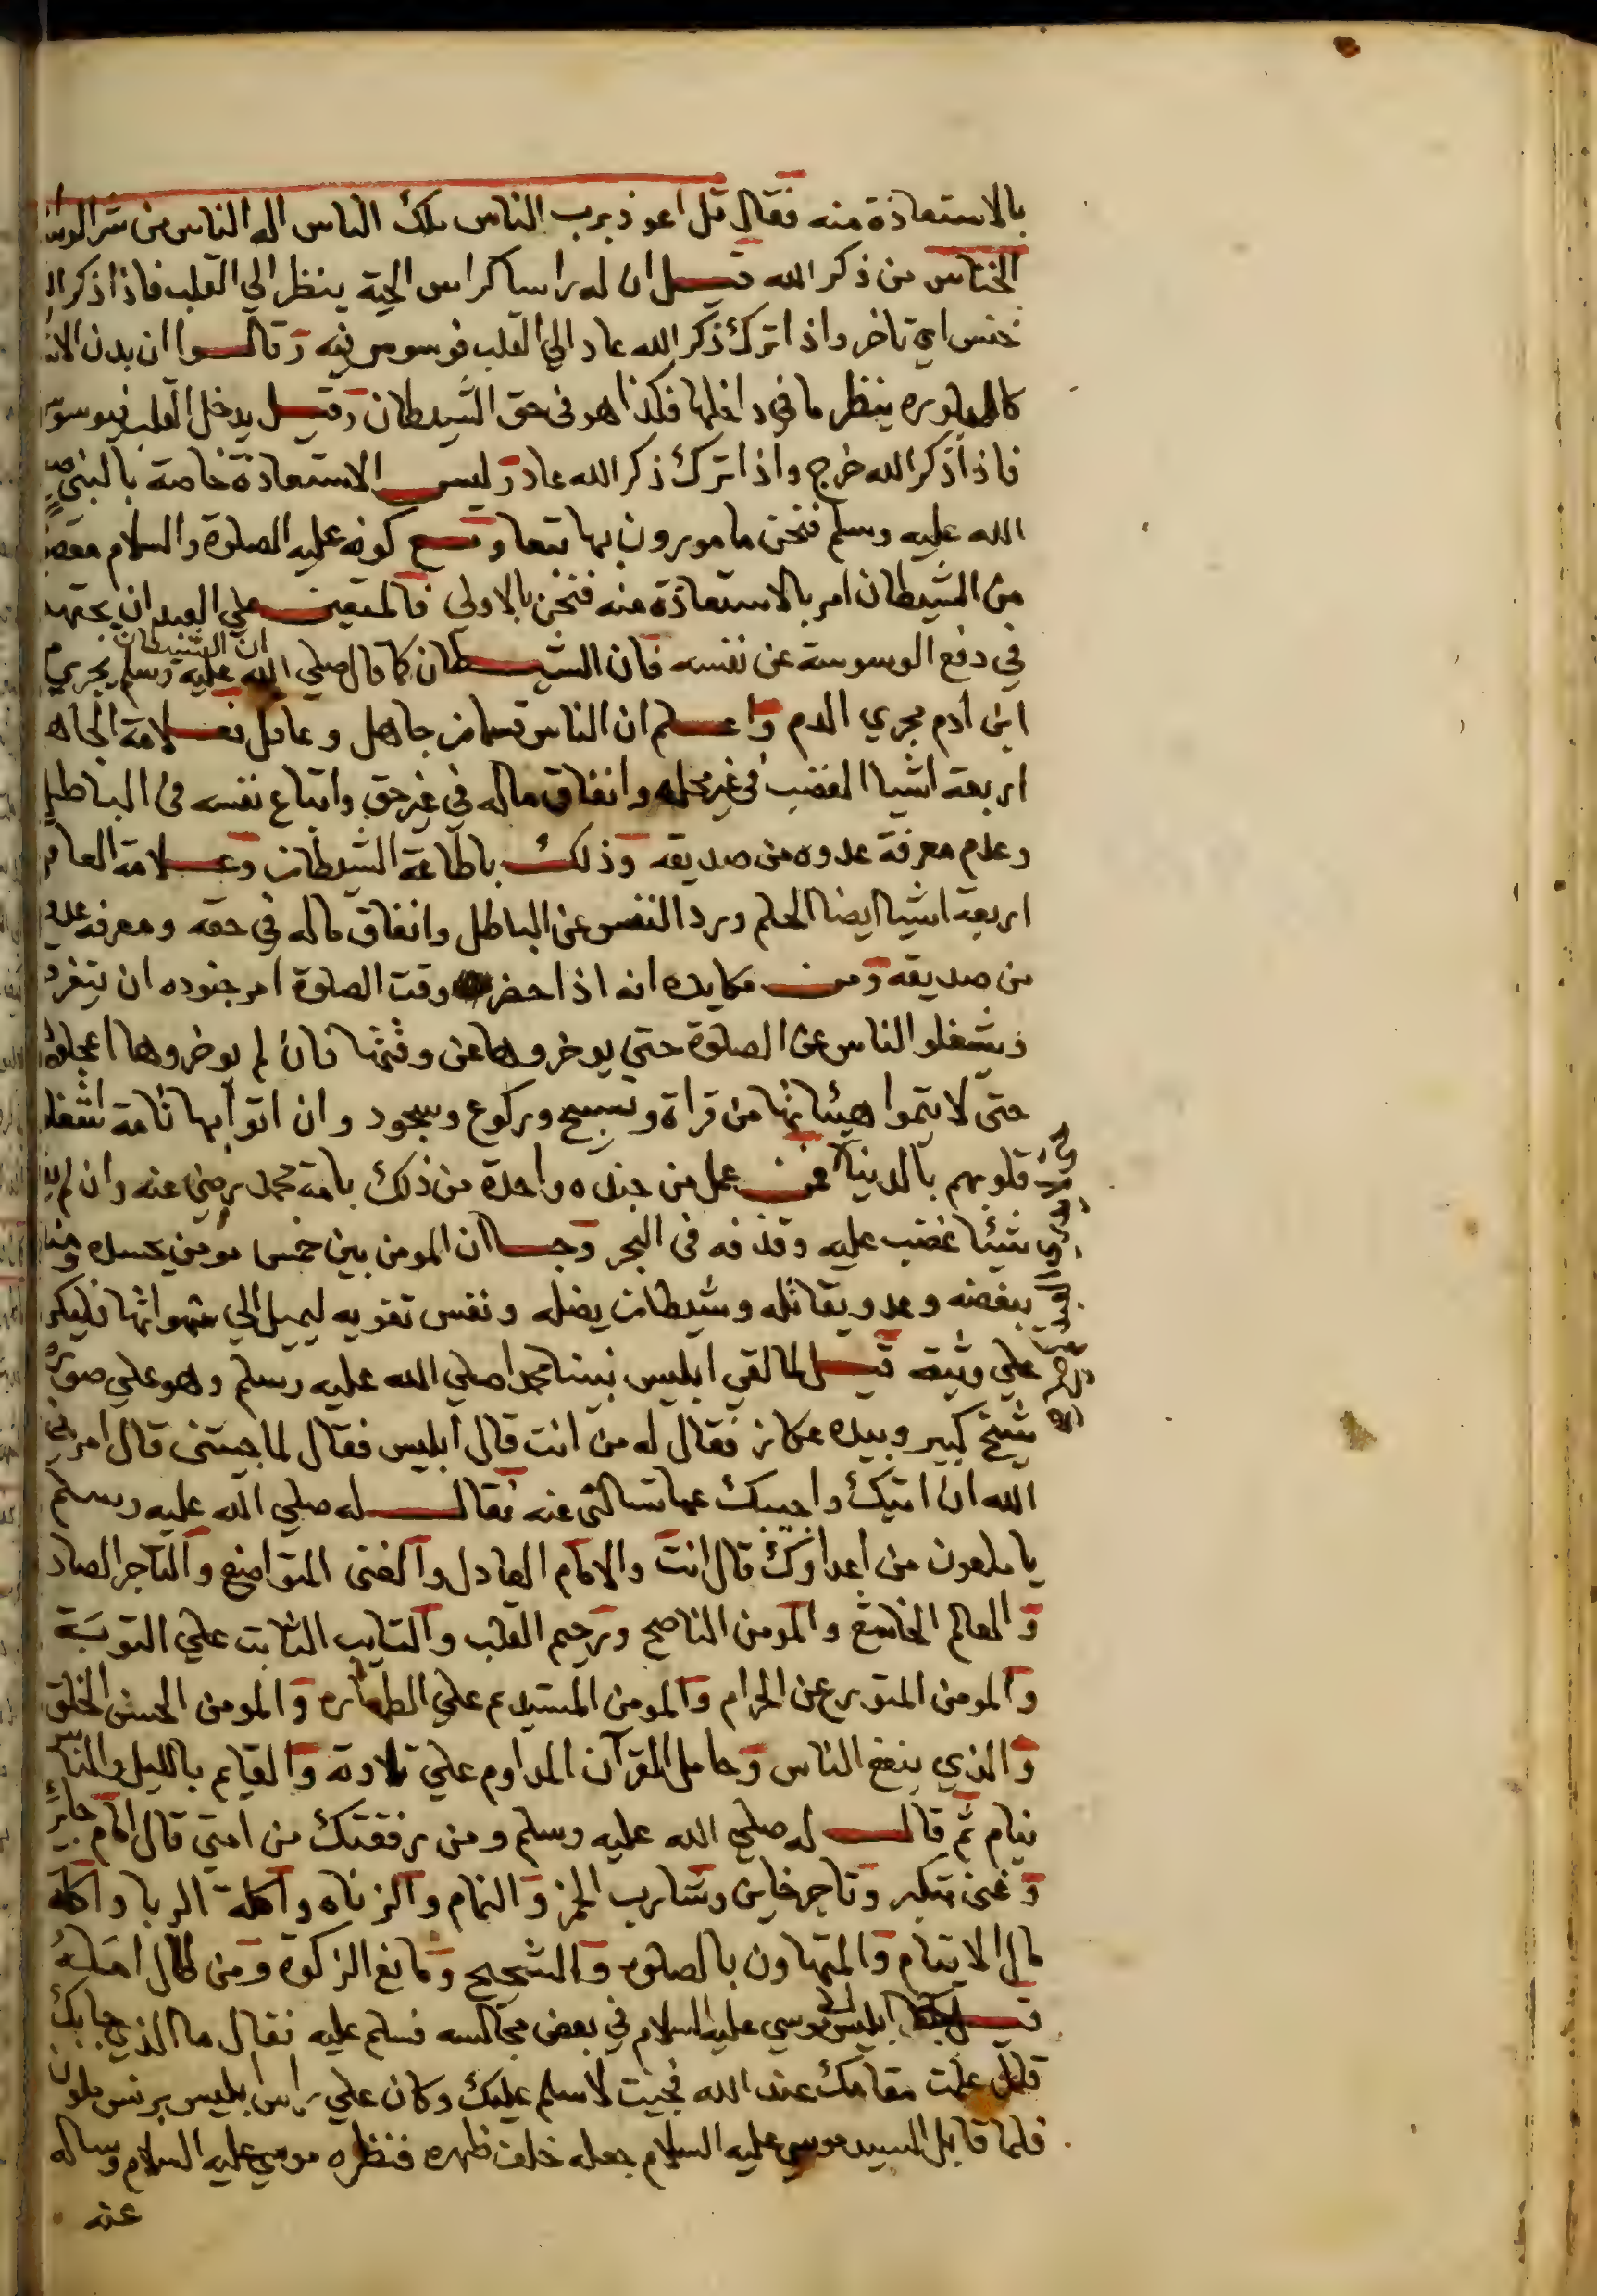 بالاستعاذة منه فقال قل اعوذ برب الناس ملك الناس اله الناس من شر الوسواس
الخناس من ذكر الله قيل ان له راسا كراس الحية ينظر الي القلب فاذا ذكر الله
خنس اي تاخر واذا ترك ذكر الله عاد الي القلب فوسوس فيه وقالوا ان بدن
كالبلوره ينظر ما في داخلها فكذا هو في حق الشيطان وقيل يدخل القلب فيوسوس
فاذا ذكر الله خرج واذا ترك ذكر الله عاد وليس الاستعاذة خاصة بالنبي صلي
الله عليه وسلم فنحن مامورون بها تبعا ومع كونه عليه الصلوة والسلام
من الشيطان امر بالاستعاذة منه فنحن بالاولي فالمتعين علي العبد ان يجتهد
في دفع الوسوسة عن نفسه فان الشيطان كما قال صلي الله عليه وسلم ان الشيطان يجري من
ابن ادم مجري الدم واعلم ان الناس قسمان جاهل وعاقل فعلامة الجاهل
اربعة اشيا الغضب في غير محله وانفاق ماله في غير حق واتباع نفسه في الباطل
وعدم معرفة عدوه من صديقه وذلك باطاعة الشيطان وعلامة العاقل
اربعة اشيا ايضا الحلم ورد النفس عن الباطل وانفاق ماله في حقه ومعرفه عدوه
من صديقه ومن مكايده انه اذا حضر وقت الصلوة امر جنوده ان يتفرقوا
ويشغلو الناس عن الصلوة حتي يوخروها عن وقتها فان لم يوخروها اعجلوهم
حتي لا يتموا هيئاتها من قراة وتسبيح وركوع وسجود وان اتو بها تامة اشغلوا
قلوبهم بالدنيا فمن عمل من جنده واحدة من ذلك بامة محمد رضي عنه وان لم
شيئا غضب عليه وقذفه في البحر وجا ان المومن بين خمس مومن يحسده ومنافق
يبغضه وعدو يقاتله وشيطان يضله ونفس تغويه ليميل الي شهواتها فليكن
علي وثيقة قيل لما لقي ابليس نبينا محمدا صلي الله عليه وسلم وهو علي صورة
شيخ كبير وبيده عكاز فقال له من انت قال ابليس فقال لما جيتني قال امرني
الله ان اتيك واجيبك عما تسالني عنه فقال له صلي الله عليه وسلم
يا ملعون من اعداوك قال انت والامام العادل والغني المتواضع والتاجر الصادق
والعالم الخاشع والمومن الناصح ورحيم القلب والتايب الثابت علي التوبة
والمومن المتورع عن الحرام والمومن المستديم علي الطهاره والمومن الحسن الخلق
والذي ينفع الناس وحامل القرآن المداوم علي تلاوته والقايم بالليل والناس
نيام ثم قال له صلي الله عليه وسلم ومن رفقتك من امتي قال امام جاير
وغني متكبر وتاجر خاين وشارب الخمر والنمام والزناه واكلة الربا واكلة
مال الايتام والمتهاون بالصلوة والشحيح ومانع الزكوة ومن طال امله
قيل ابليس موسي عليه السلام في بعض مجالسه فسلم عليه فقال ما الذي جابك
قال علمت مقامك عند الله فجيت لاسلم عليك وكان علي راس ابليس برنس ملون
فلما قابل السيد موسي عليه السلام جعله خلف ظهره فنظره موسي عليه السلام وساله
عنه